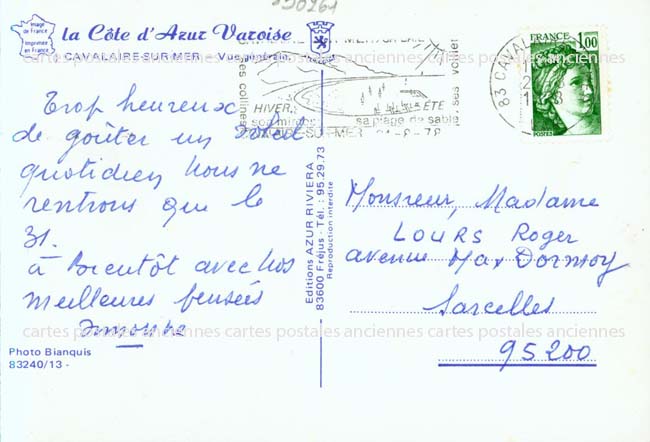 890261
Image de France
Imprimée en France
la Côte d'Azur Varoise
CAVALAIRE-SUR-MER - Vue générale
cartes postales anciennes cartes postales anciennes
ses collines
HIVER
ÉTÉ
son mimosa
sa plage de sable
ses voiliers
-SUR-MER
83 CAVAL
FRANCE
1,00
POSTES
Trop heureux
de goûter un soleil
quotidien nous ne
rentrons que le
31.
à Bientôt avec nos
meilleures pensées
Simonne
Photo Bianquis
83240/13 -
Editions AZUR RIVIERA
83600 Fréjus - Tél. : 95.29.73
Reproduction interdite
Monsieur, Madame
LOURS Roger
avenue Max Dormoy
Sarcelles
95200
cartes postales anciennes cartes postales anciennes